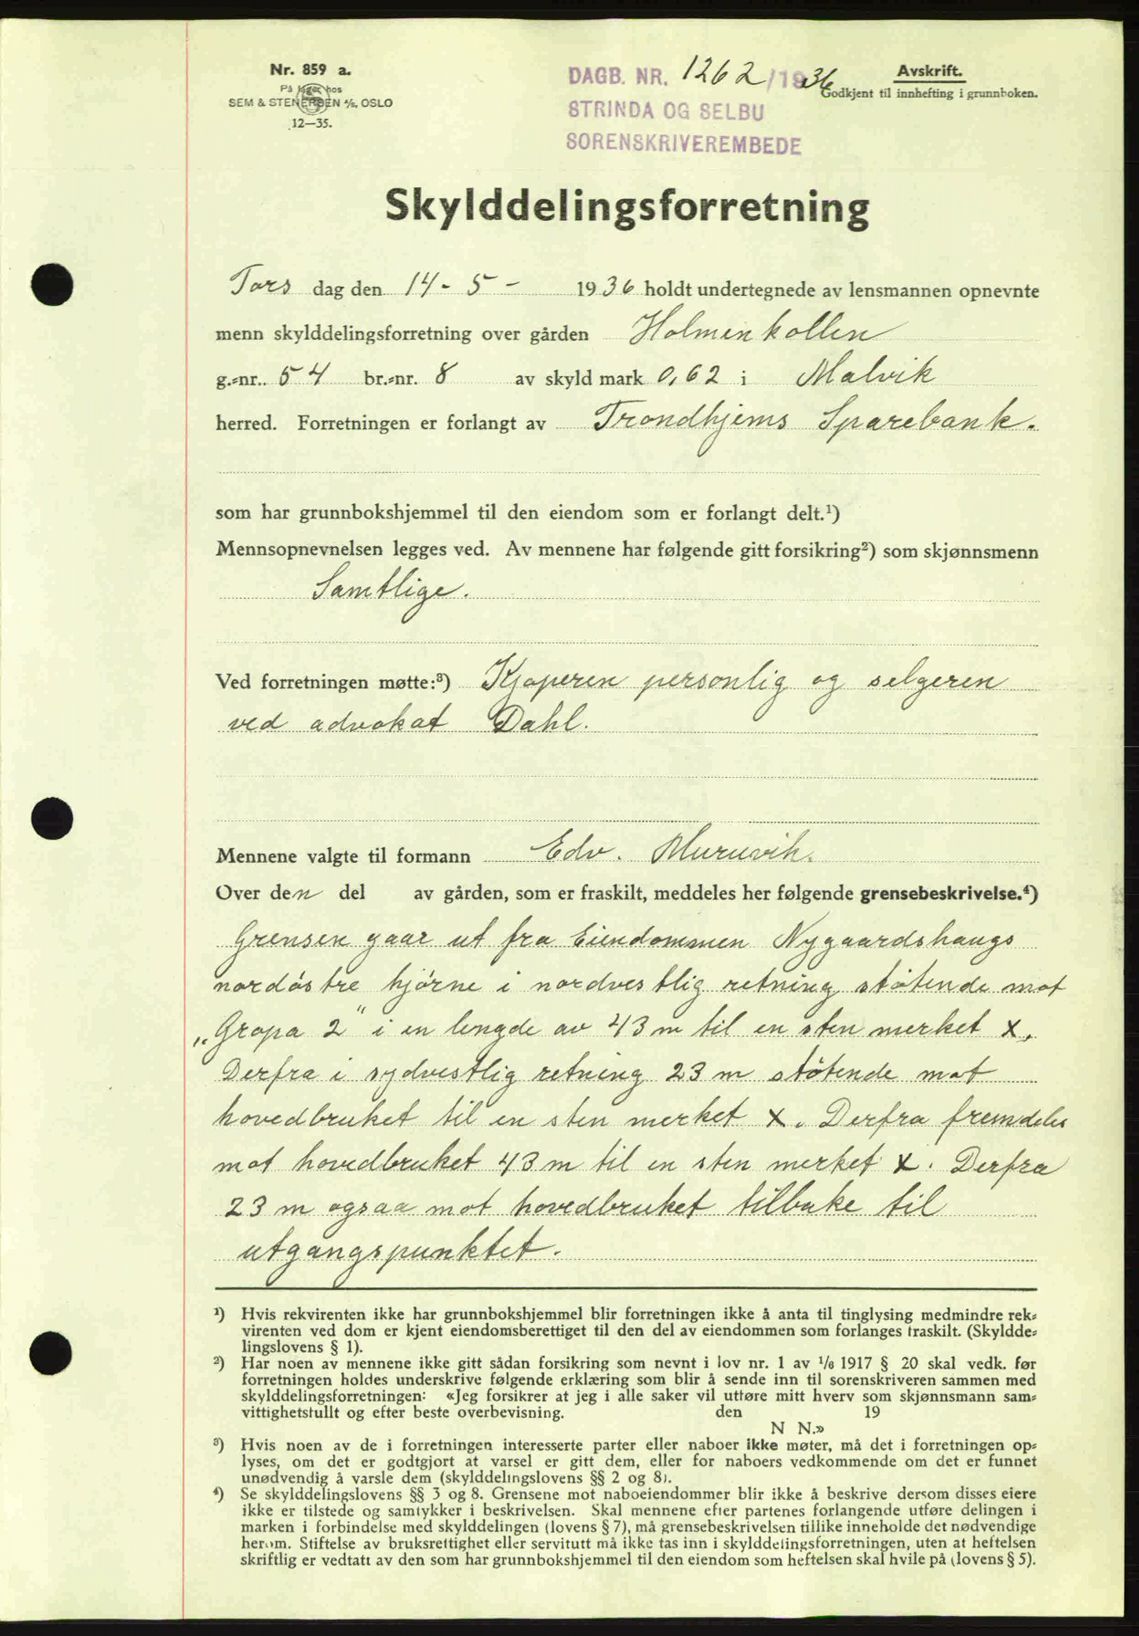 Nr. 859 a.
På lager hos
SEM & STENERSEN A/S, OSLO
12—35.
DAGB. NR. 1262/1936
STRINDA OG SELBU
SORENSKRIVEREMBEDE
Avskrift.
Godkjent til innhefting i grunnboken.
Skylddelingsforretning
Tors dag den 14 - 5 - 1936 holdt undertegnede av lensmannen opnevnte
menn skylddelingsforretning over gården Holmenkollen
g.=nr. 54 br.=nr. 8 av skyld mark 0,62 i Malvik
herred. Forretningen er forlangt av Trondhjems Sparebank.
som har grunnbokshjemmel til den eiendom som er forlangt delt.¹)
Mennsopnevnelsen legges ved. Av mennene har følgende gitt forsikring²) som skjønnsmenn
Samtlige.
Ved forretningen møtte:³) Kjøperen personlig og selgeren
ved advokat Dahl.
Mennene valgte til formann Edv. Muruvik.
Over den del av gården, som er fraskilt, meddeles her følgende grensebeskrivelse.⁴)
Grensen gaar ut fra Eiendommen Nygaardshaugs
nordöstre hjörne i nordvestlig retning stötende mot
„Gropa 2" i en lengde av 43 m til en sten merket x.
Derfra i sydvestlig retning 23 m stötende mot
hovedbruket til en sten merket x. Derfra fremdeles
mot hovedbruket 43 m til en sten merket x. Derfra
23 m ogsaa mot hovedbruket tilbake til
utgangspunktet.
¹) Hvis rekvirenten ikke har grunnbokshjemmel blir forretningen ikke å anta til tinglysing medmindre rek=
virenten ved dom er kjent eiendomsberettiget til den del av eiendommen som forlanges fraskilt. (Skyldde=
lingslovens § 1).
²) Har noen av mennene ikke gitt sådan forsikring som nevnt i lov nr. 1 av 1/6 1917 § 20 skal vedk. før
forretningen holdes underskrive følgende erklæring som blir å sende inn til sorenskriveren sammen med
skylddelingsforretningen: «Jeg forsikrer at jeg i alle saker vil utføre mitt hverv som skjønnsmann sam=
vittighetsfullt og efter beste overbevisning. den 19
N N.»
³) Hvis noen av de i forretningen interesserte parter eller naboer ikke møter, må det i forretningen op=
lyses, om det er godtgjort at varsel er gitt dem, eller for naboers vedkommende om det er funnet
unødvendig å varsle dem (skylddelingslovens §§ 2 og 8).
⁴) Se skylddelingslovens §§ 3 og 8. Grensene mot naboeiendommer blir ikke å beskrive dersom disses eiere
ikke er tilstede og samtykker i beskrivelsen. Skal mennene efter partenes forlangende utføre delingen i
marken i forbindelse med skylddelingen (lovens § 7), må grensebeskrivelsen tillike inneholde det nødvendige
herom. Stiftelse av bruksrettighet eller servitutt må ikke tas inn i skylddelingsforretningen, uten at heftelsen
skriftlig er vedtatt av den som har grunnbokshjemmel til den eiendom som heftelsen skal hvile på (lovens § 5).